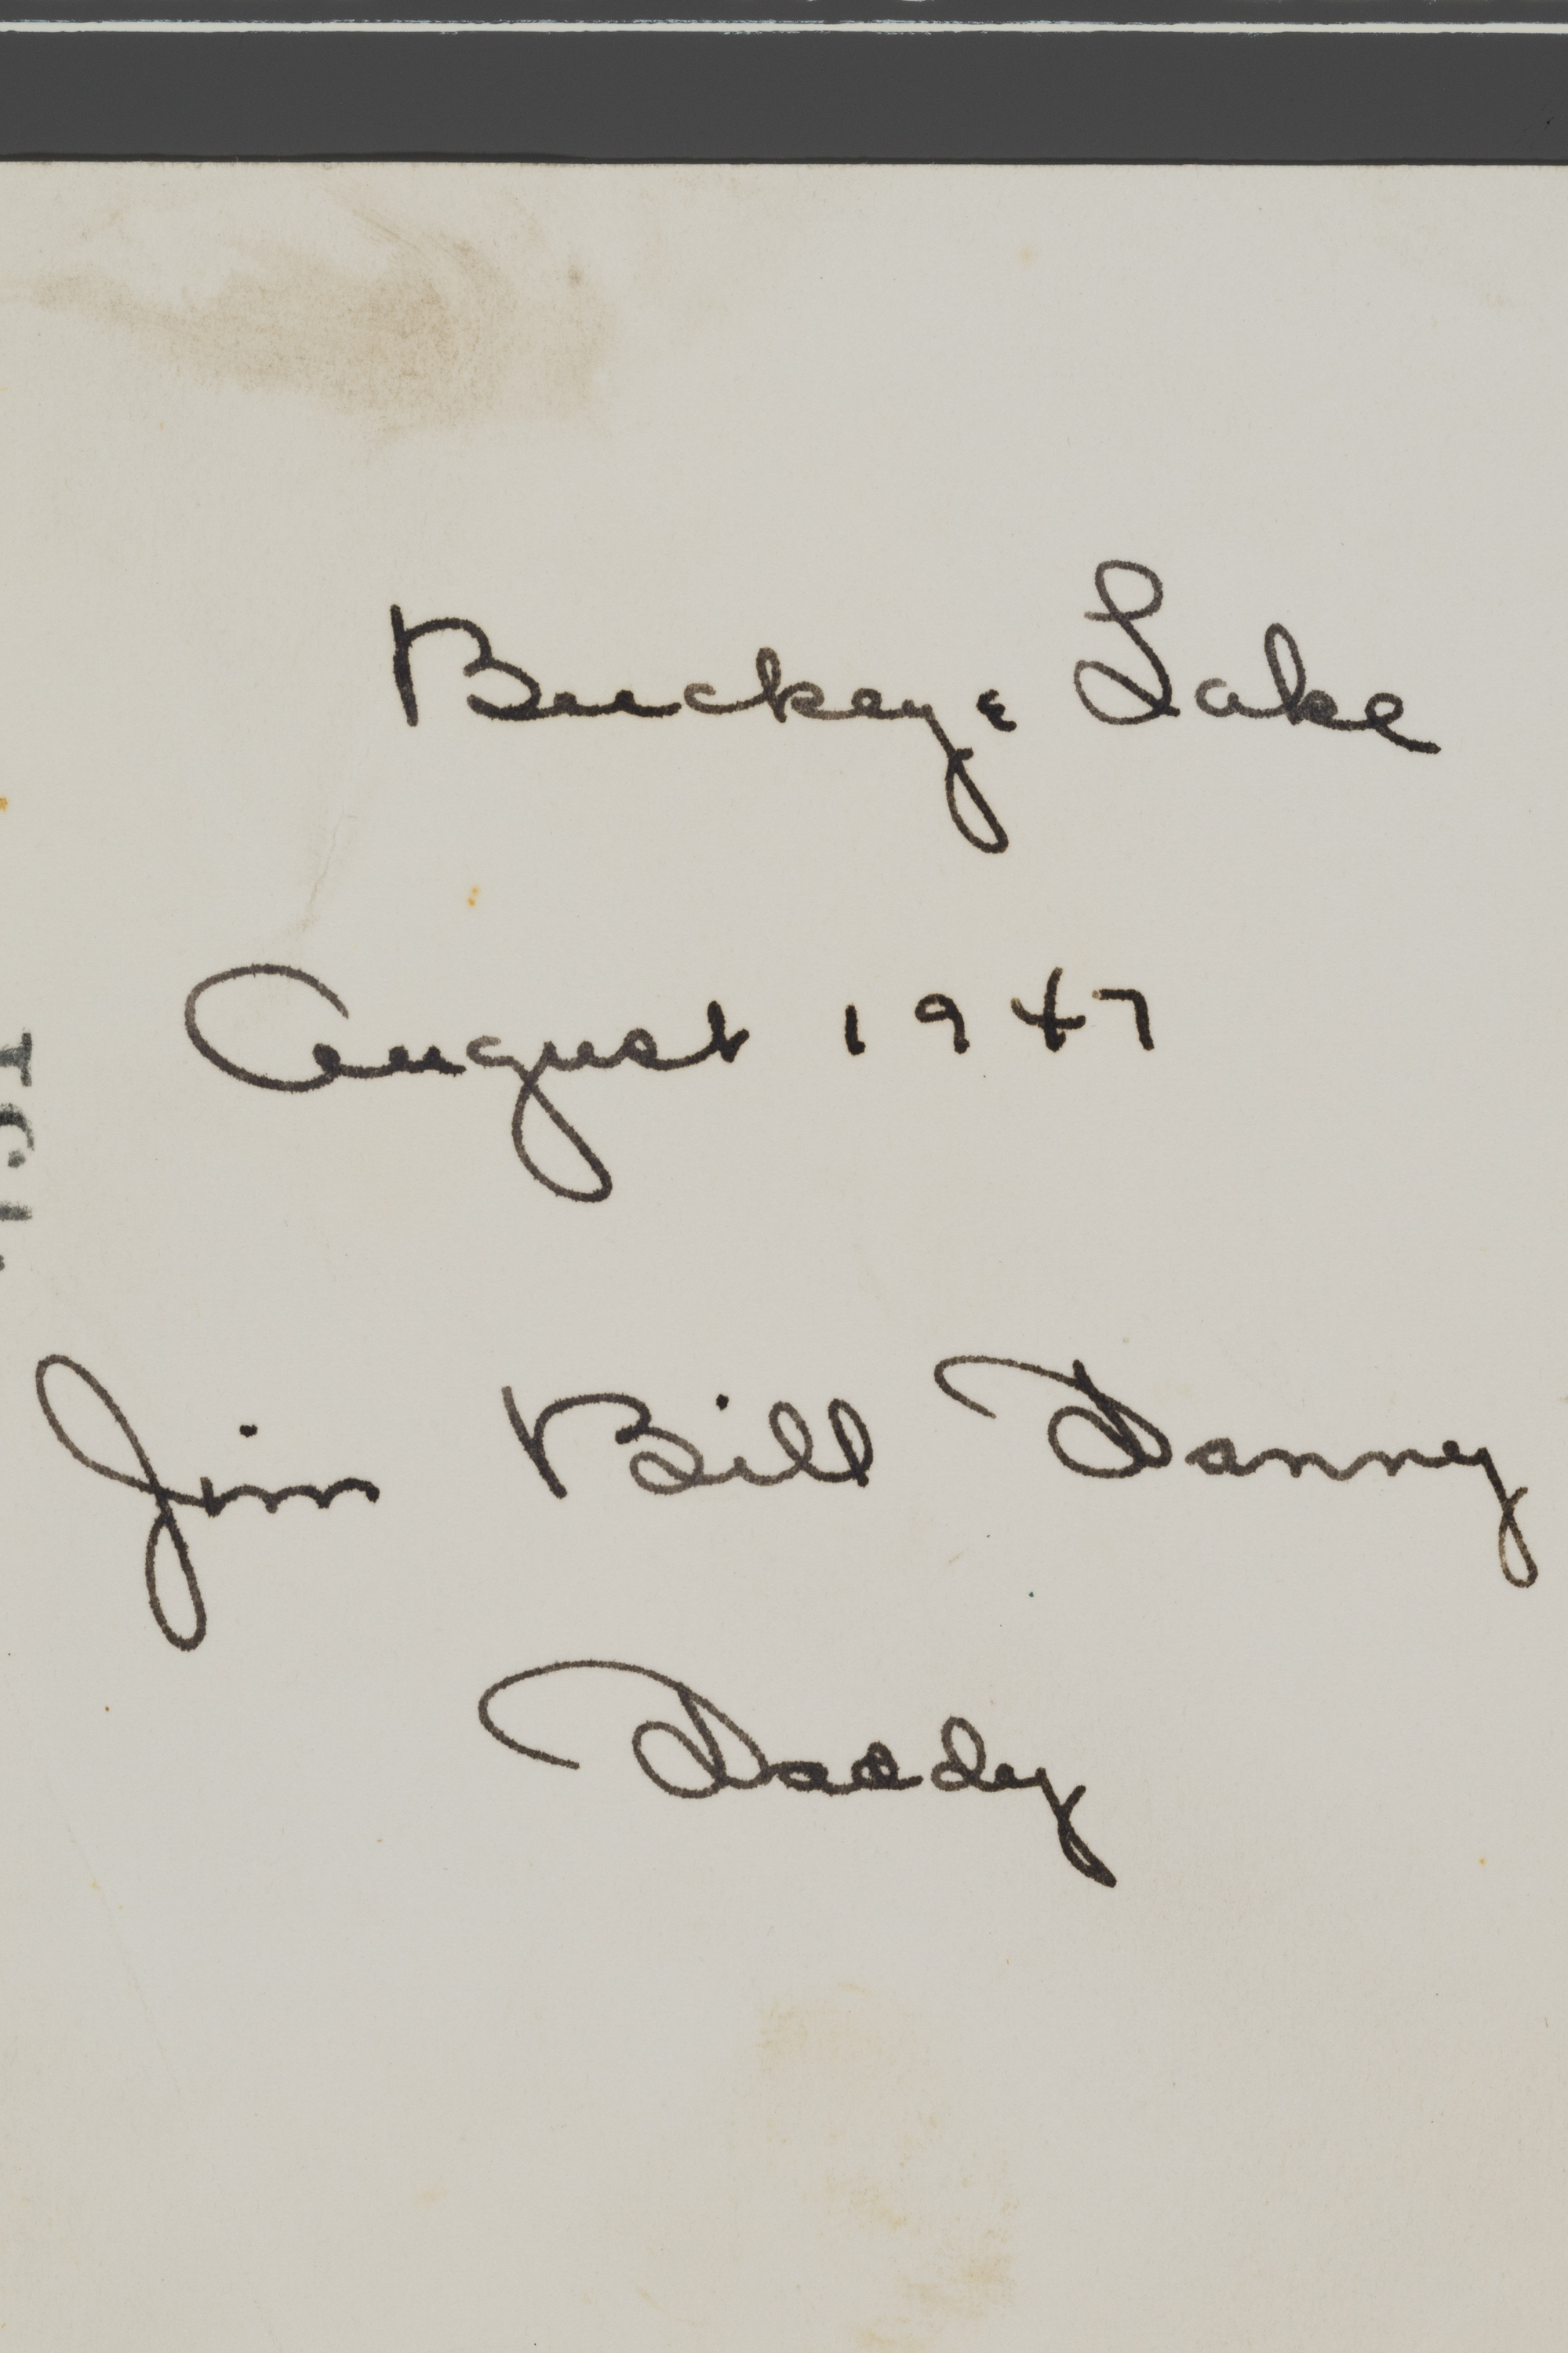 Buckeye Lake
August 1947
Jim Bill Danny
Daddy